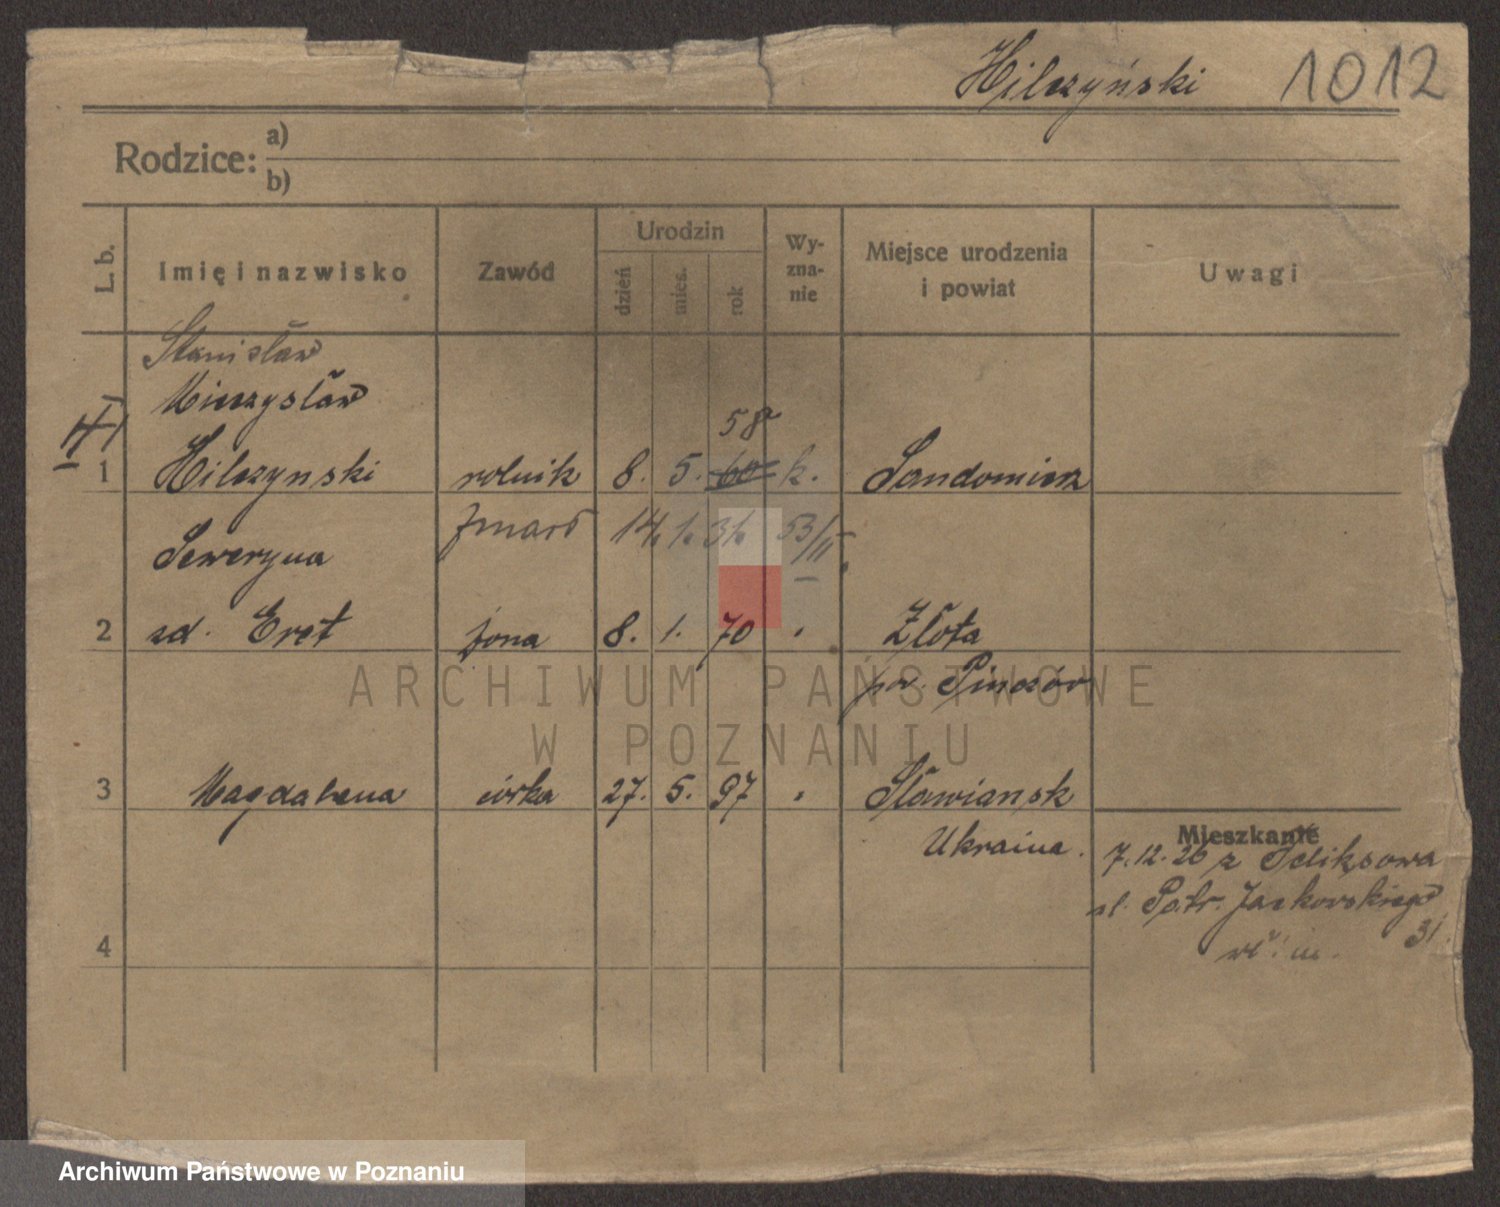 Hilczyński 1012
Rodzice: a)
b)
L. b. Imię i nazwisko Zawód Urodzin dzień mies. rok Wy-zna-nie Miejsce urodzenia i powiat Uwagi
Stanisław
Mieczysław
58
1 Hilczynski rolnik 8. 5. 60 k. Sandomierz
zmarł 14. 1. 31. 53/II
Seweryna
2 zd. Eret żona 8. 1. 70 Złota
pow. Pinczów
3 Magdalena córka 27. 5. 97 Sławiansk
Ukraina.
Mieszkanie
7.12.26 z
ul. Patr. Jackowskiego
31.
4
ARCHIWUM PAŃSTWOWE
W POZNANIU
Archiwum Państwowe w Poznaniu